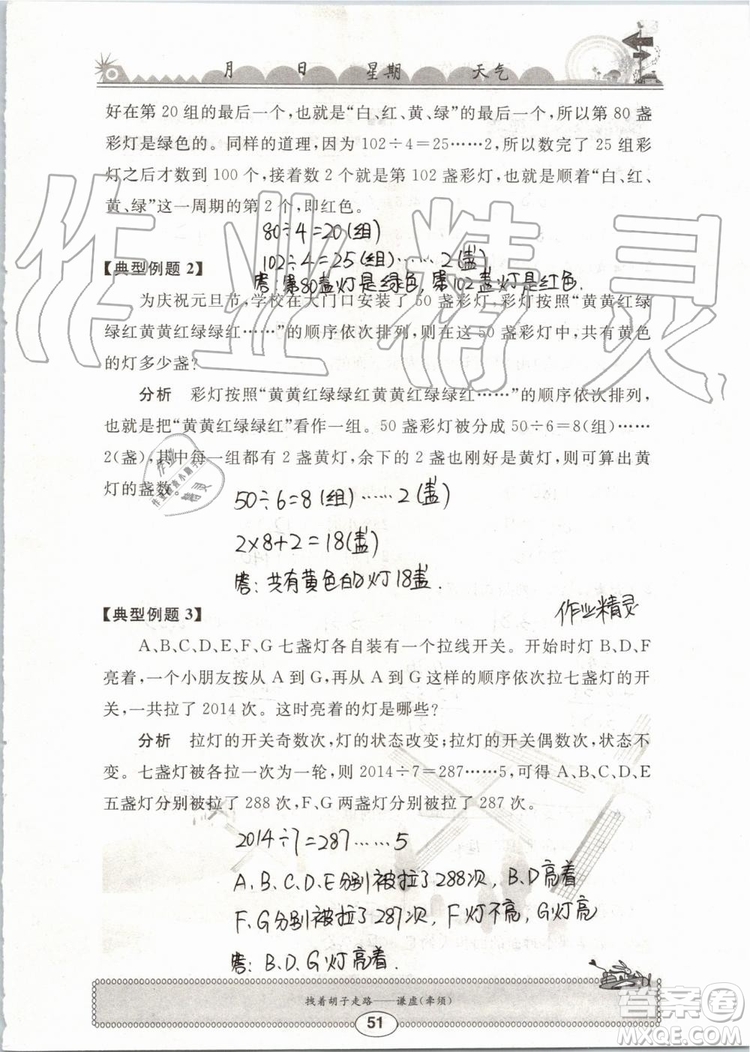 月 日 星期 天气
好在第 20 组的最后一个,也就是“白、红、黄、绿”,所以第 80 盏
彩灯是绿色的。同样的道理,因为 102÷4=25……2,所以数完了 25 组彩
灯之后才数到 100 个,接着数 2 个就是第 102 盏彩灯,也就是顺着“白、红、
黄、绿”这一周期的第 2 个,即红色。
80÷4=20(组)
102÷4=25(组)……2(盏)
答:第80盏灯是绿色,第102盏灯是红色.
【典型例题 2】
为庆祝元旦节,学校在大门口安装了 50 盏彩灯,彩灯按照“黄黄红绿
绿红黄黄红绿绿红……”的顺序依次排列,则在这 50 盏彩灯中,共有黄色
的灯多少盏?
分析 彩灯按照“黄黄红绿绿红黄黄红绿绿红……”的顺序依次排列,
也就是把“黄黄红绿绿红”看作一组。50 盏彩灯被分成 50÷6=8(组)……
2(盏),其中每一组都有 2 盏黄灯,余下的 2 个也刚好是黄灯,则可算出黄
灯的盏数。
50÷6=8(组)……2(盏)
2×8+2=18(盏)
答:共有黄色的灯18盏.
作业精灵
【典型例题 3】
A、B、C、D、E、F、G 七盏灯各自装有一个拉线开关。开始时灯 B、D、F
亮着,一个小朋友按从 A 到 G,再从 A 到 G 这样的顺序依次拉七盏灯的开
关,一共拉了 2014 次。这时亮着的灯是哪些?
分析 拉灯的开关奇数次,灯的状态改变;拉灯的开关偶数次,状态不
变。七盏灯被各拉一次为一轮,则 2014÷7=287……5,可得 A、B、C、D、E
五盏灯分别被拉了 288 次,F、G 两盏灯分别被拉了 287 次。
2014÷7=287……5
A、B、C、D、E分别被拉了288次, B、D亮着
F、G分别被拉了287次, F灯不亮, G灯亮
答: B、D、G灯亮着.
拽着胡子走路——谦虚(牵须)
51
作业精灵
答案圈